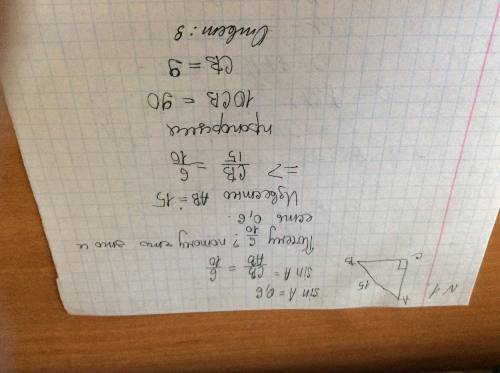 N1
A
15
C
B
sin A = 0,6
sin A = CB/AB = 6/10
Почему 6/10? потому что это и
есть 0,6.
Известно AB = 15
=> CB/15 = 6/10
пропорция
10CB = 90
CB = 9
Ответ: 9